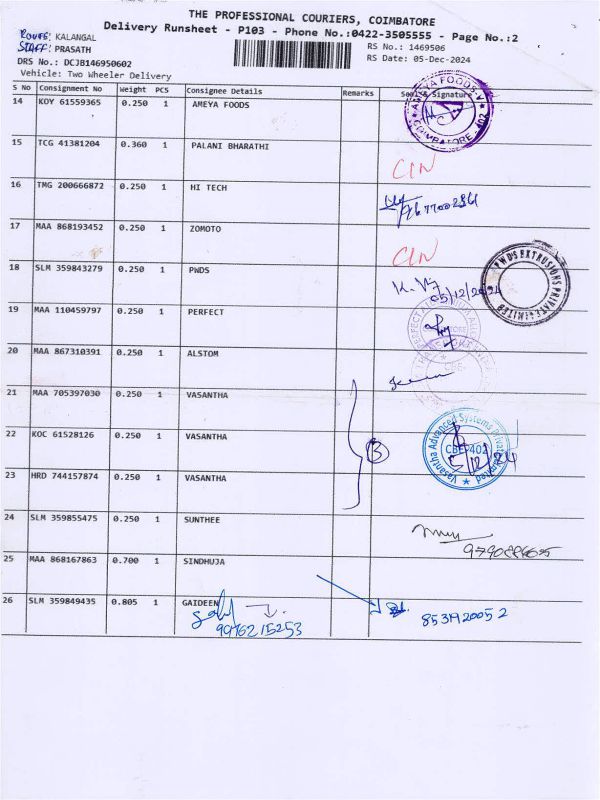 THE PROFESSIONAL COURIERS, COIMBATORE
Delivery Runsheet - P103 - Phone No.:0422-3505555 - Page No.:2
ROUTE: KALANGAL
RS No.: 1469506
STAFF: PRASATH
RS Date: 05-Dec-2024
DRS No.: DCJB146950602
Vehicle: Two Wheeler Delivery
S No Consignment No Weight PCS Consignee Details Remarks Seal & Signature
14 KOY 61559365 0.250 1 AMEYA FOODS
AMEYA FOODS
COIMBATORE-402
15 TCG 41381204 0.360 1 PALANI BHARATHI
CIN
16 TMG 200666872 0.250 1 HI TECH
17 MAA 868193452 0.250 1 ZOMOTO
CIN
18 SLM 359843279 0.250 1 PWDS
05/12/2024
PWDS EXTRUSIONS PRIVATE LIMITED
19 MAA 110459797 0.250 1 PERFECT
20 MAA 867310391 0.250 1 ALSTOM
21 MAA 705397030 0.250 1 VASANTHA
22 KOC 61528126 0.250 1 VASANTHA
3
Vasantha Advanced Systems Private Limited
CBE-402
5/12/24
23 HRD 744157874 0.250 1 VASANTHA
24 SLM 359855475 0.250 1 SUNTHEE
25 MAA 868167863 0.700 1 SINDHUJA
26 SLM 359849435 0.805 1 GAIDEEN